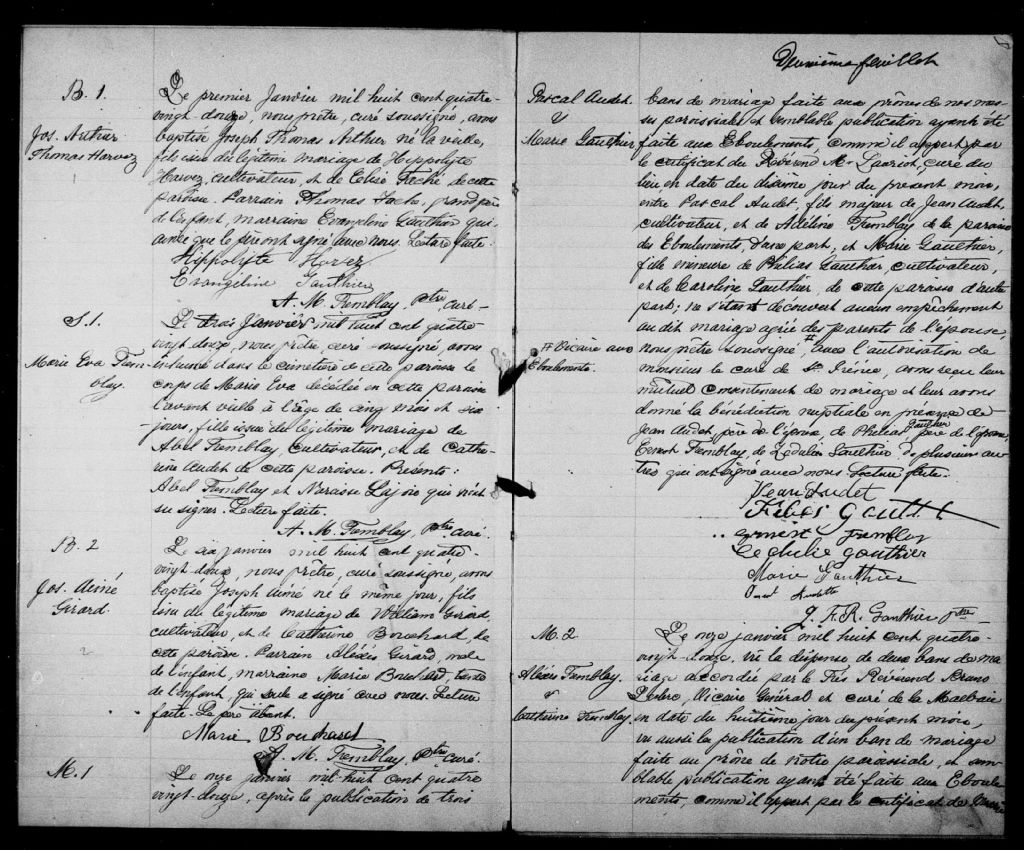 B. 1.
Jos. Arthur
Thomas Harvez
Le premier Janvier mil huit cent quatre-
vingt-douze, nous prêtre, curé soussigné, avons
baptisé Joseph Thomas Arthur né la veille,
fils issu du légitime mariage de Hippolyte
Harvez, cultivateur, et de Elise Taché de cette
paroisse. Parrain Thomas Tache, grand père
de l'enfant, marraine Evangeline Gauthier qui,
ainsi que le père ont signé avec nous. Lecture faite.
Hippolyte Harvez
Evangéline Gauthier
A. M. Tremblay, Ptre curé.
S. 1.
Marie Eva Trem-
blay.
Le trois Janvier mil huit cent quatre
vingt douze, nous prêtre, curé soussigné, avons
inhumé dans le cimetière de cette paroisse le
corps de Marie Eva décédée en cette paroisse
l'avant veille à l'âge de cinq mois et six
jours, fille issue du légitime mariage de
Abel Tremblay, cultivateur, et de Cathe-
rine Audet de cette paroisse. Présents:
Abel Tremblay et Narcisse Lajoie qui n'ont
su signer. Lecture faite.
A. M. Tremblay, Ptre curé.
B. 2
Jos. Aimé
Girard.
2
Le six janvier mil huit cent quatre-
vingt douze, nous prêtre, curé soussigné, avons
baptisé Joseph Aimé né le même jour, fils
issu du légitime mariage de William Girard,
cultivateur, et de Catherine Bouchard, de
cette paroisse. Parrain Aléxis Girard, oncle
de l'enfant, marraine Marie Bouchard, tante
de l'enfant, qui seule a signé avec nous. Lecture
faite. Le père absent.
Marie Bouchard
A. M. Tremblay, Ptre curé.
M. 1
Le onze janvier mil huit cent quatre
vingt-douze, après la publication de trois
Deuxième feuillet
Pascal Audet.
&
Marie Gauthier
bans de mariage faite aux prônes de nos mes-
ses paroissiales et semblable publication ayant été
faite aux Eboulements, comme il appert par
le certificat du Révérend Mr curé du
lieu en date du dixième jour du présent mois,
entre Pascal Audet, fils majeur de Jean Audet,
cultivateur, et de Adéline Tremblay de la paroisse
des Eboulements, d'une part, et Marie Gauthier,
fille mineure de Philias Gauthier, cultivateur,
et de Caroline Gauthier, de cette paroisse d'autre
part; ne s'étant découvert aucun empêchement
au dit mariage agréé des parents de l'épouse,
# Vicaire aux
Eboulements.
nous prêtre soussigné, # avec l'autorisation de
monsieur le curé de St. Irénée, avons reçu leur
mutuel consentement de mariage et leur avons
donné la bénédiction nuptiale en présence de
Jean Audet, père de l'époux, de Philias Gauthier père de l'épouse,
Ernest Tremblay, de Zédulie Gauthier & plusieurs au-
tres qui ont signé avec nous. Lecture faite.
Jean Audet
Filias Gautth
Ernest Trembley
Cedulie Gauthier
Marie Gauthier
J. F. R. Gauthier ptre
M. 2
Aléxis Tremblay.
&
Catherine Tremblay
Le onze janvier mil huit cent quatre-
vingt-douze. vu la dispense de deux bans de ma-
riage accordée par le Très Révérend Bruno
Leclerc, Vicaire Général et curé de la Malbaie
en date du huitième jour du présent mois,
vu aussi la publication d'un ban de mariage
faite au prône de notre paroissiale, et sem-
blable publication ayant été faite aux Eboule
ments, comme il appert par le certificat de